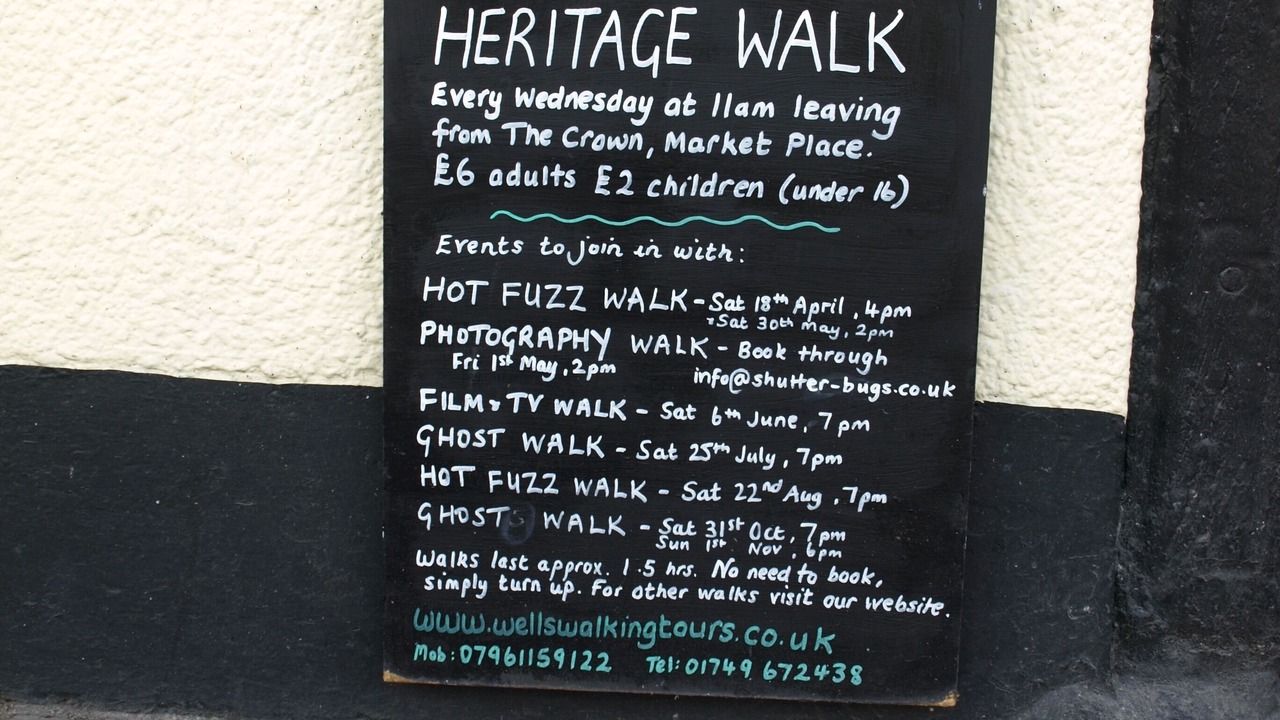 HERITAGE WALK
Every Wednesday at 11am leaving
from The Crown, Market Place.
£6 adults £2 children (under 16)
Events to join in with:
HOT FUZZ WALK - Sat 18th April, 4pm
+Sat 30th May, 2pm
PHOTOGRAPHY WALK - Book through
Fri 1st May, 2pm info@shutter-bugs.co.uk
FILM & TV WALK - Sat 6th June, 7pm
GHOST WALK - Sat 25th July, 7pm
HOT FUZZ WALK - Sat 22nd Aug, 7pm
GHOST WALK - Sat 31st Oct, 7pm
Sun 1st Nov, 6pm
Walks last approx. 1.5 hrs. No need to book,
simply turn up. For other walks visit our website.
www.wellswalkingtours.co.uk
Mob: 07961159122 Tel: 01749 672438